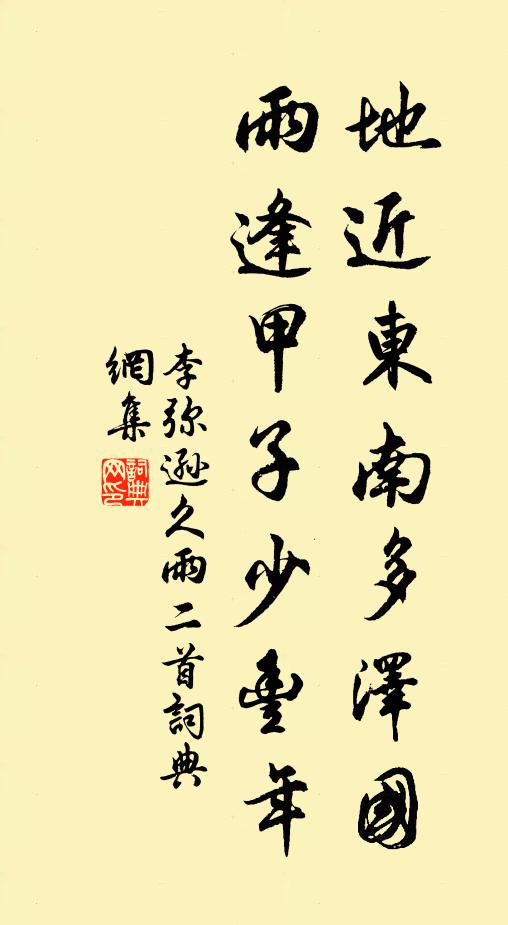 地近東南多澤國
雨逢甲子少豐年
李弥遜久雨二首詞典
網集
詞典
网印